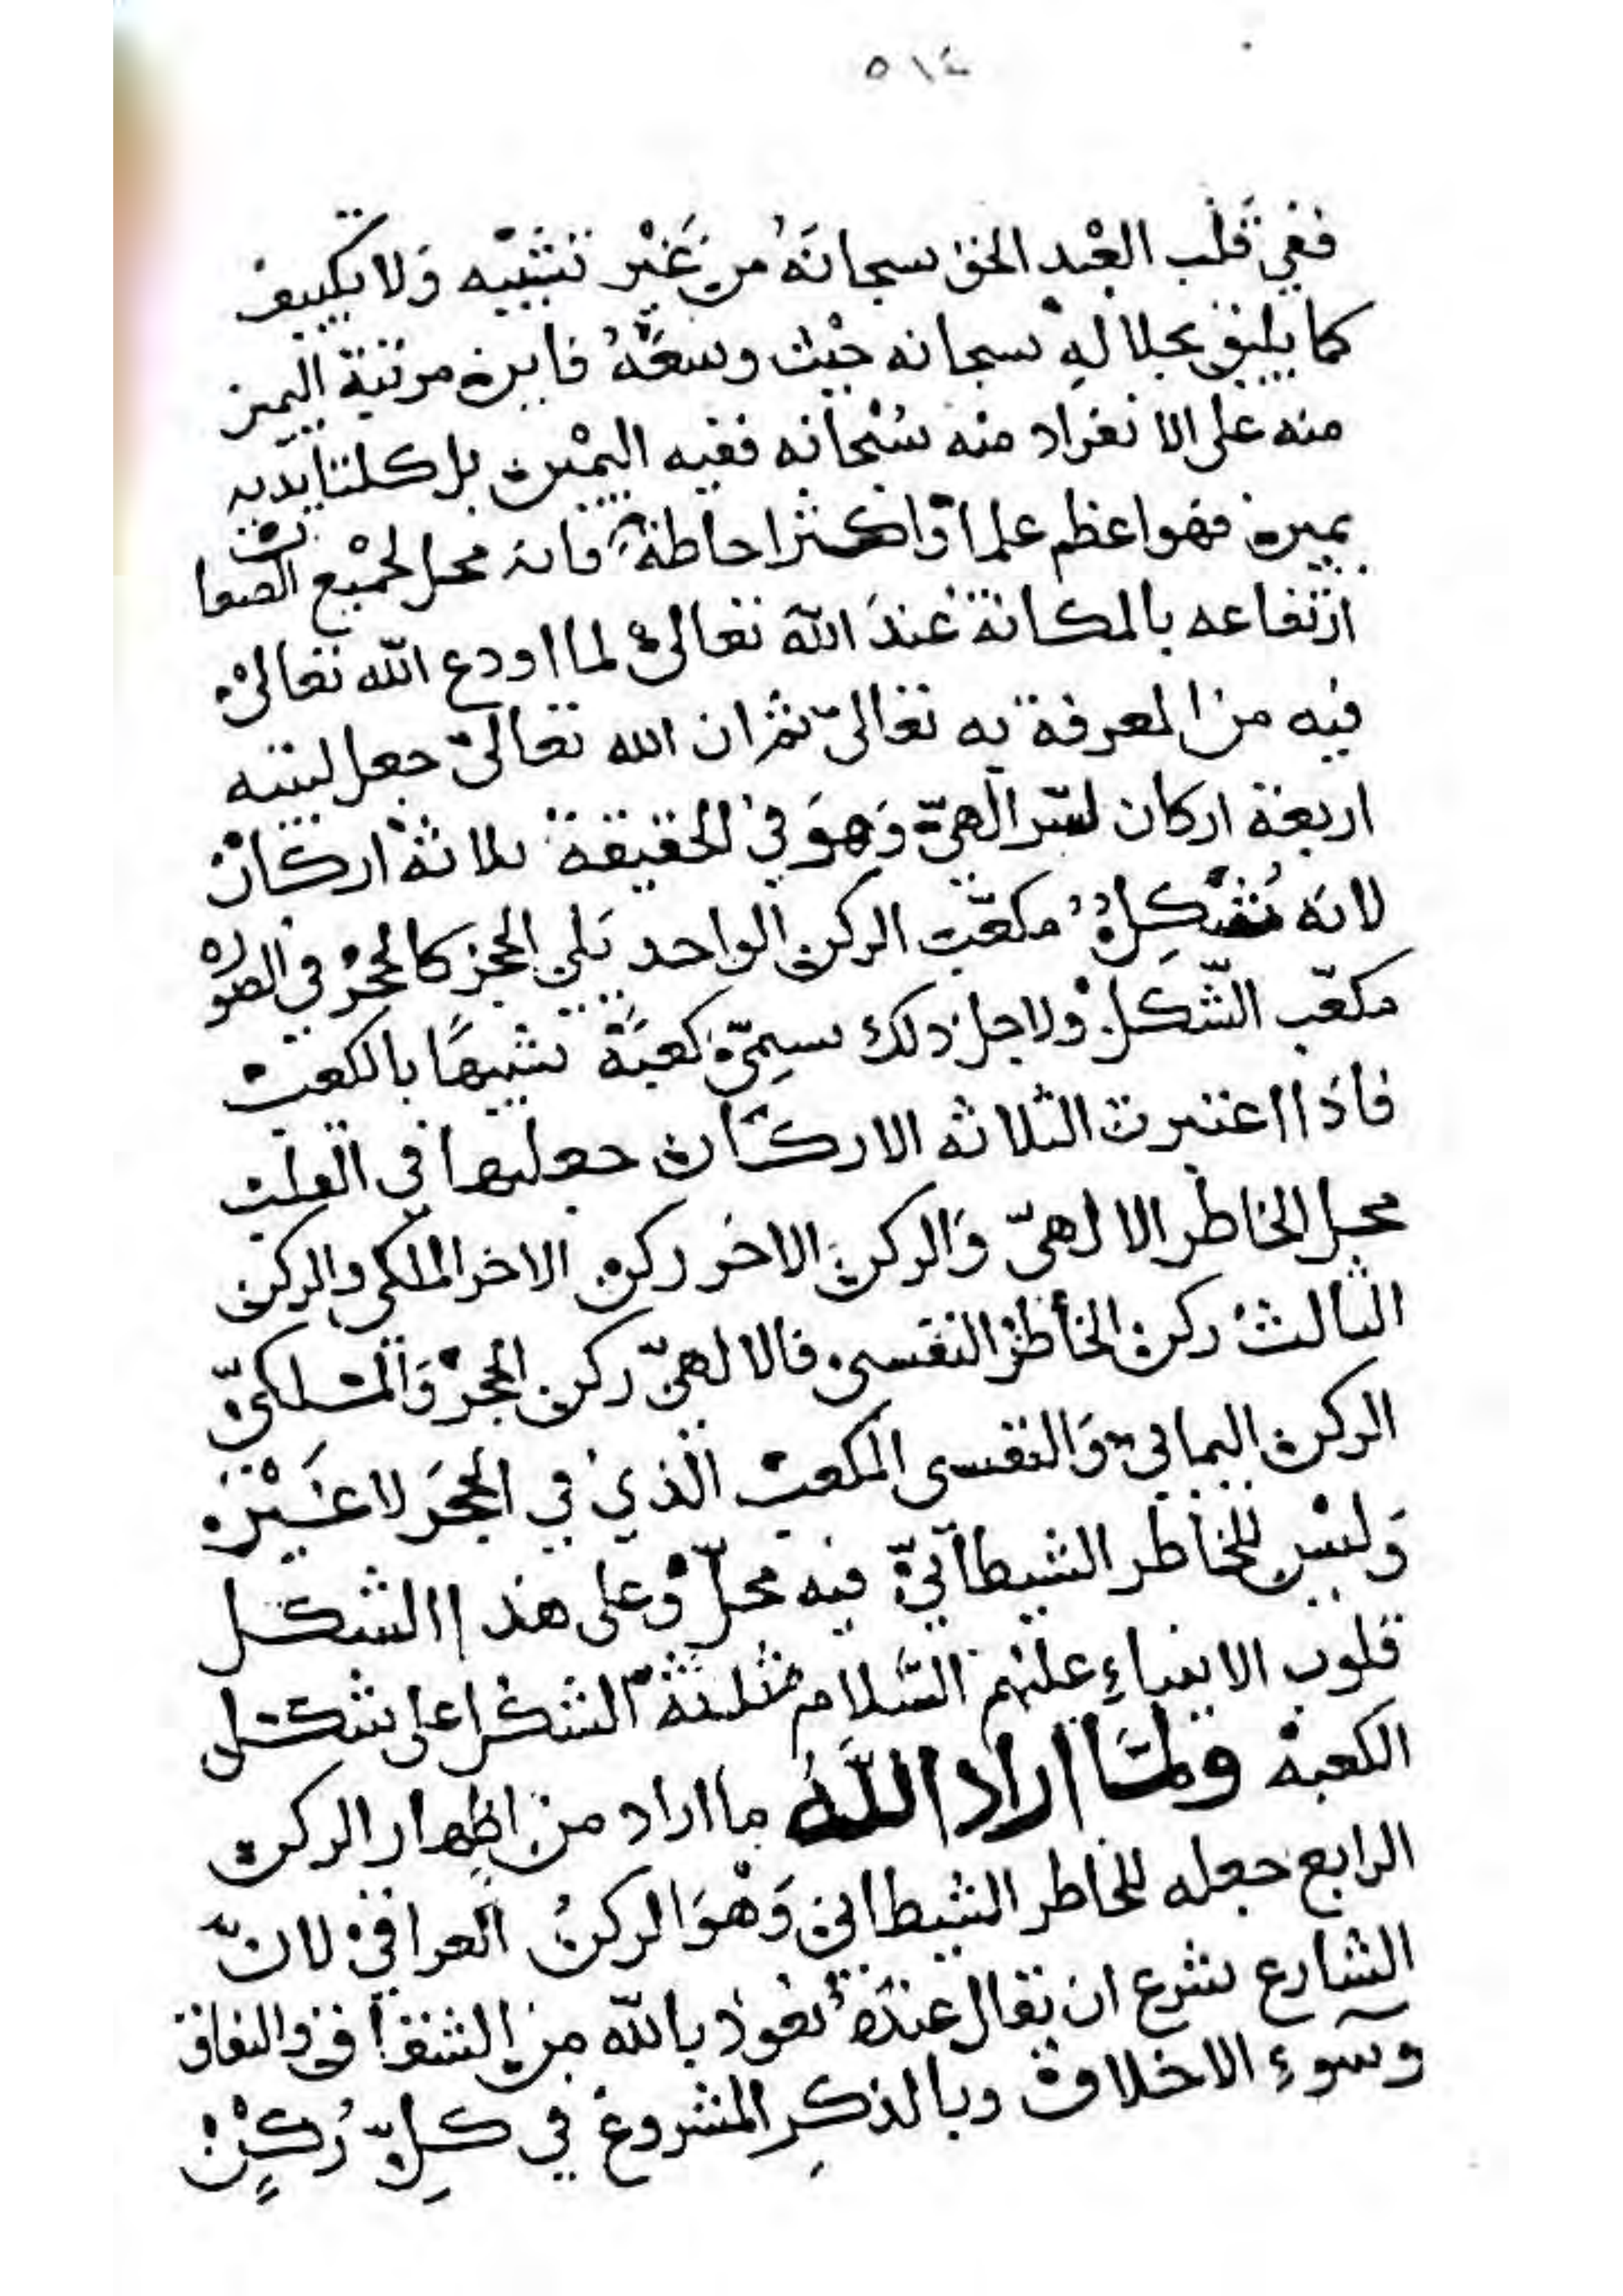 ٥١٤
ففي قَلْب العْبد الحق سبحانَهُ من غَيْر تشبيْه وَلا تكييف
كما يليق بجلالهِ سبحانه حيْث وسعَهُ فاين مرتبة اليمين
منه على الانفراد منه سُبْحانه ففيه اليمْين بل كلتا يديه
يمين فهو اعظم علما وَاكثر احاطة فانه محل لجمْيع الصفات
ارتفاعه بالمكانة عْندَ الله تعالىْ لما اودع الله تعالىْ
فيه من المعرفة به تعالىّ ثم ان الله تعالىّ جعل لبيته
اربعة اركان لسّر الٓهيّ وَهوَ في الحقيقة ثلاثة اركان
لانه مُشَكلْ مكعّب الركن الواحد يَلي الحجر كالحجْر في الصوره
مكعّب الشّكل وْلاجل ذلك سمِيّ كعبَة تشبيهًا بالكعب
فاذا اعتبرت الثلاثه الاركان جعلتها في القلب
محل الخاطر الالهىّ وَالركن الاخر ركن الاخر الملكى والركن
الثالثْ ركن الخاطر النفسى فالالهىّ ركن الحجرْ وَالملكىّ
الركن اليمانى وَالنفسى المكعب الّذي في الحجَر لا غَيْر
وَليْس للخاطر الشيطآنيّ فيه محلّ وْعلى هذا الشكل
قلوب الانبياءِ عليْهم السَّلام مثلثة الشكل على شكل
الكعبة ولمَّا اراد اللَّهُ ما اراد من اظهار الركن
الرابع جعله للخاطر الشيطانى وَهْوَ الركنُ العراقيْ لانّ
الشارع شرع ان يقال عندهُ نعوذ بالله من الشقاق والنفاق
وسوءِ الاخلاق وبالذكرِ المشروع في كلِّ رُكْنٍ